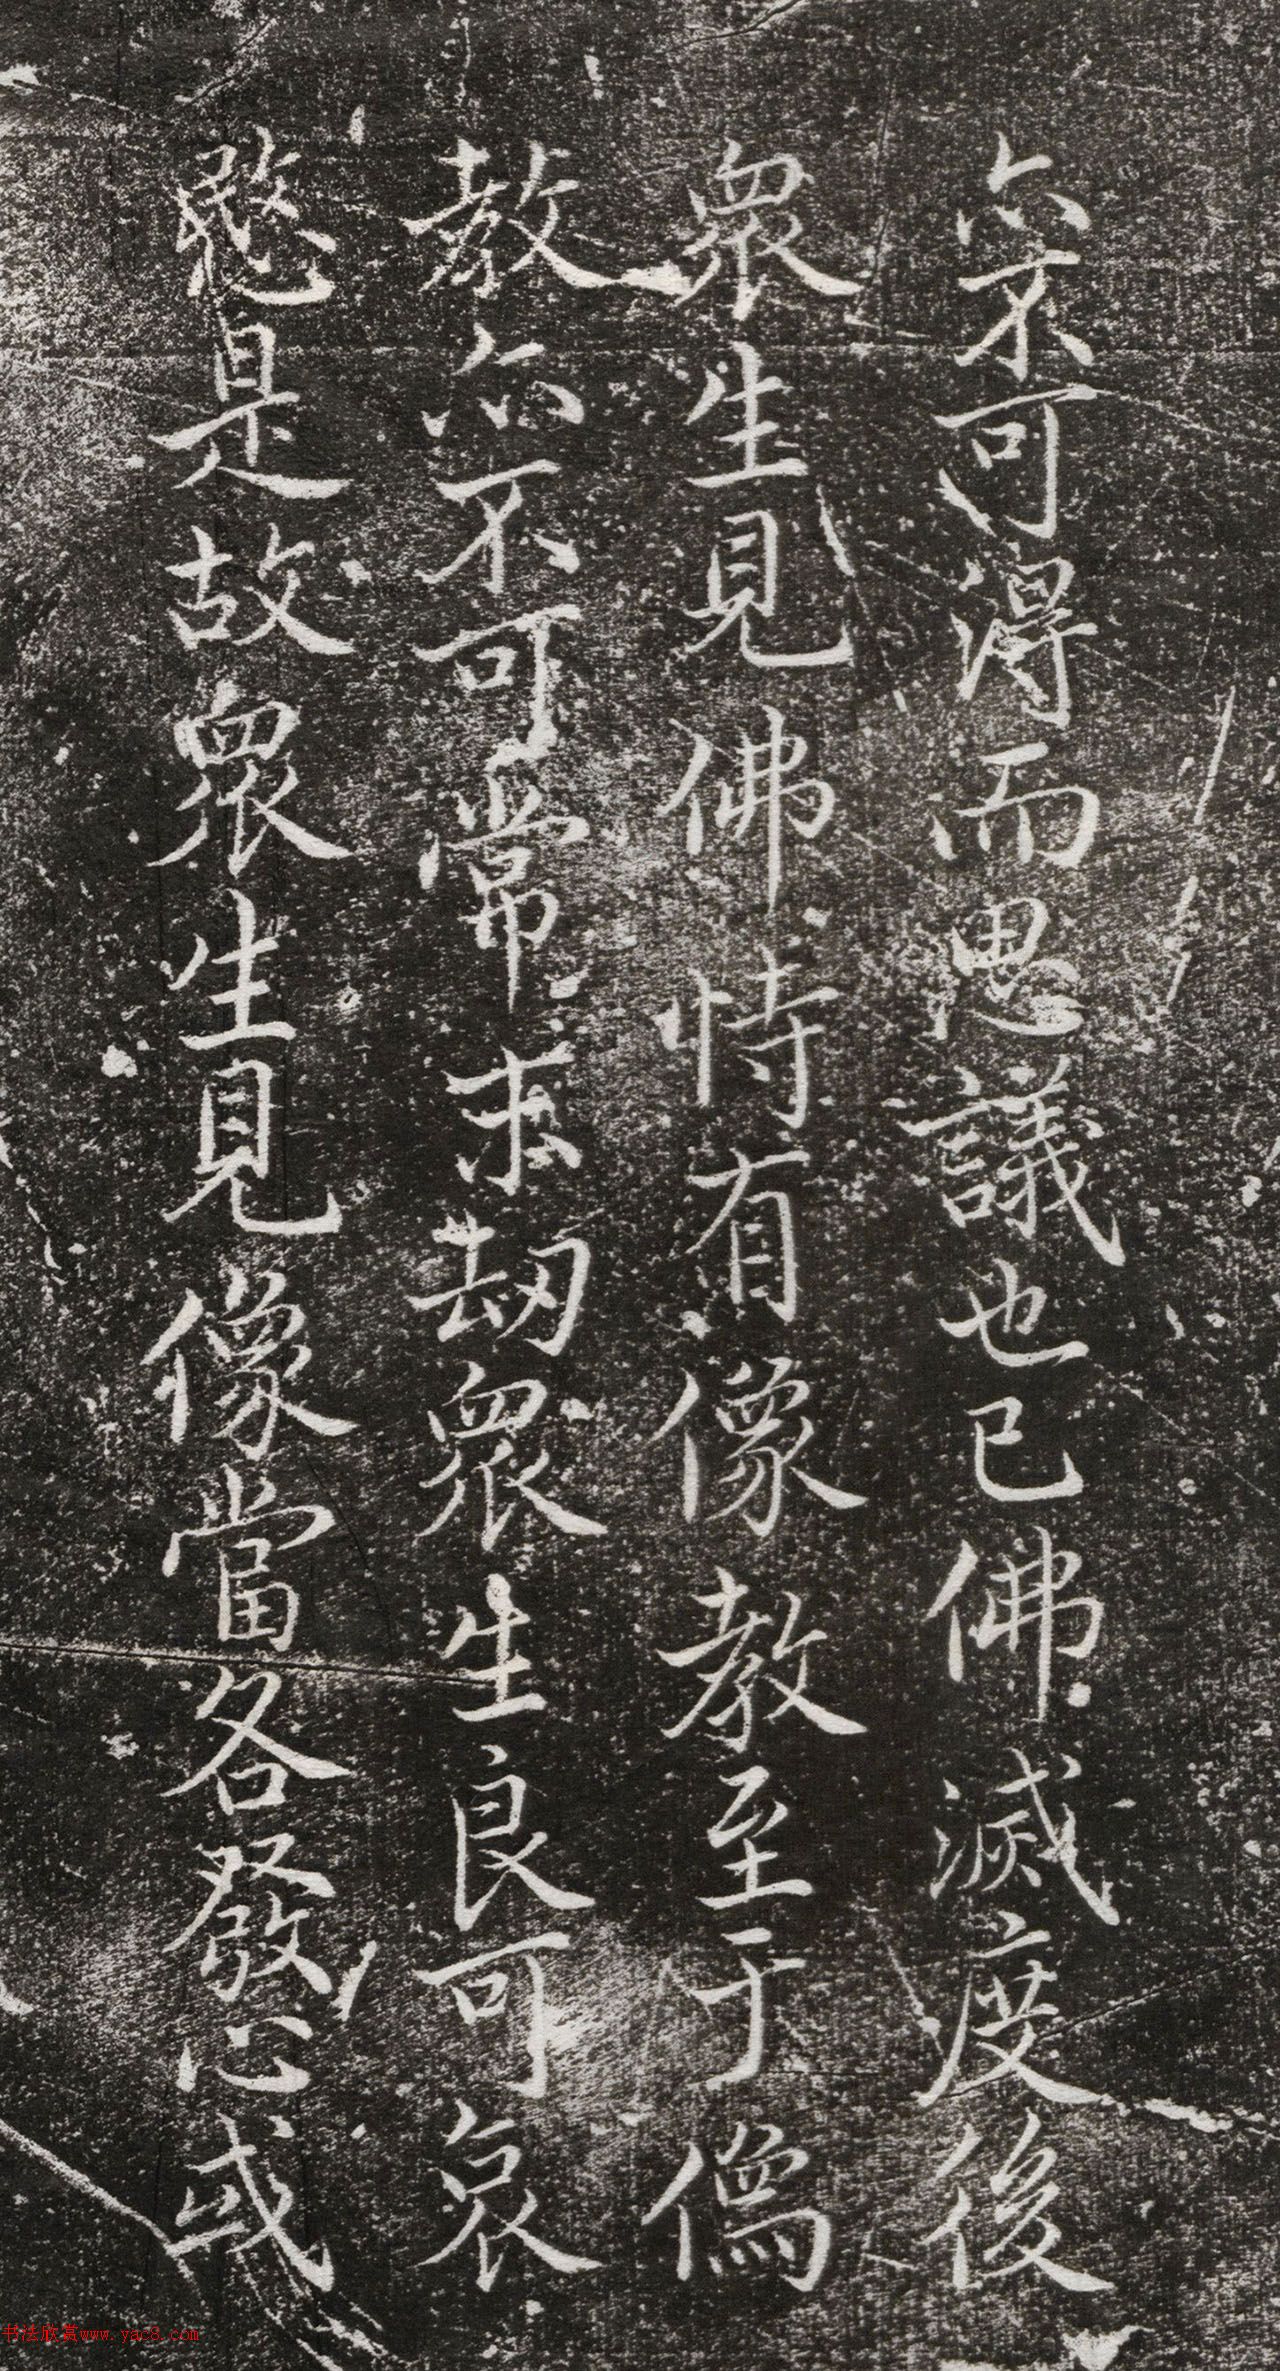 亦不可得而思議也已佛滅度後
眾生見佛恃有像教至于僞
教亦不可常求劫眾生良可哀
愍是故眾生見像當各發心或
书法欣赏www.yac8.com